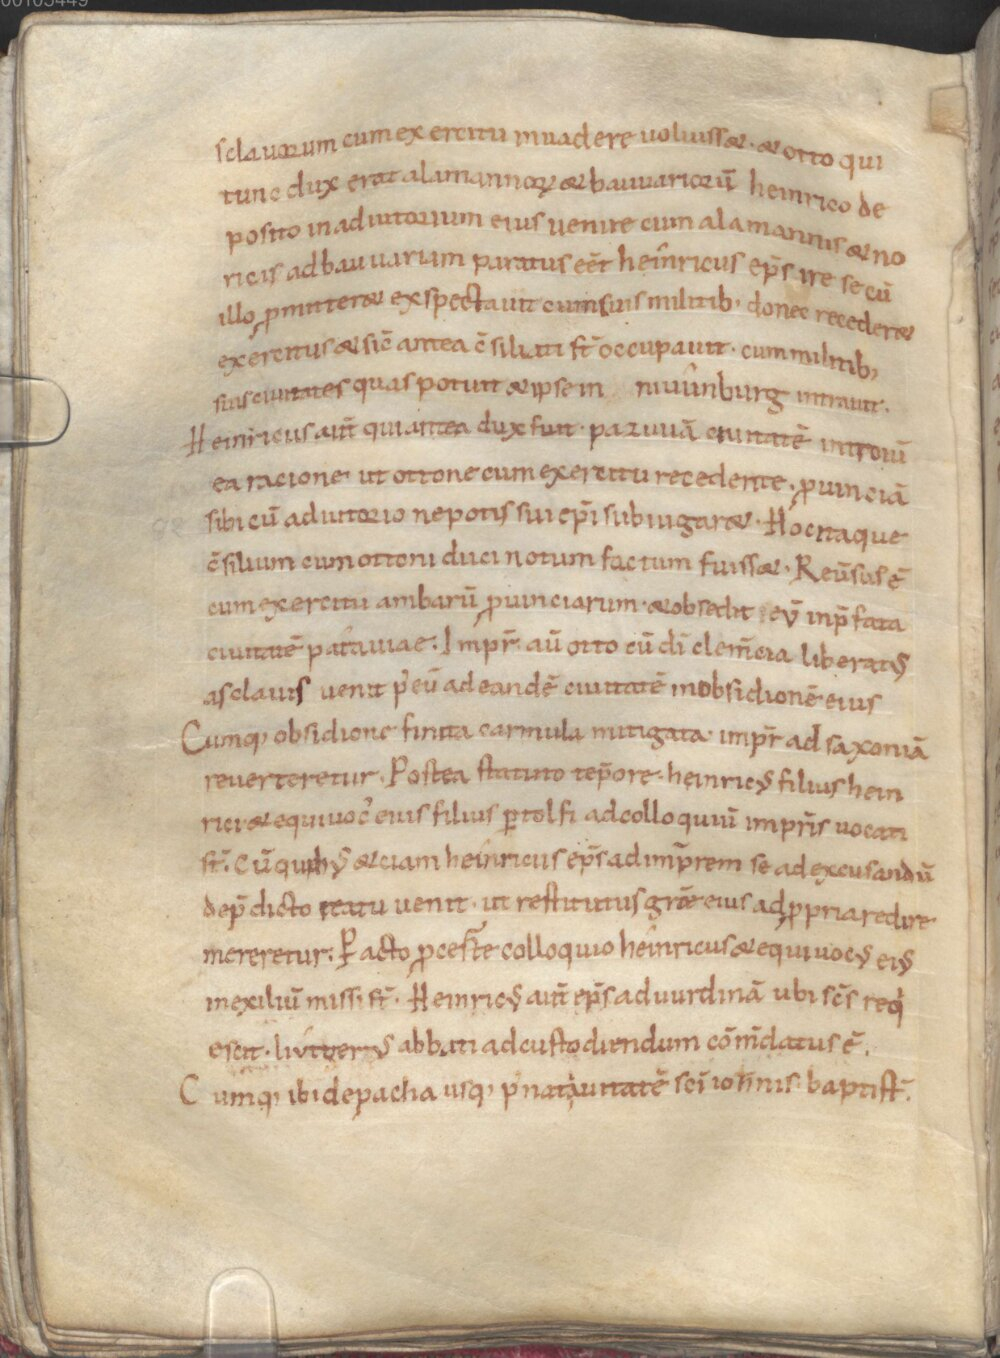 00105449
sclauorum cum exercitu inuadere uoluiss&. & otto qui
tunc dux erat alamannoꝝ & bauuariorū heinrico de
posito in adiutorium eius uenire cum alamannis & no
ricis ad bauuariam paratus eēt heinricus ep̄s ire se cū
illo ꝓmitter& exspectauit cum suis militib; donec receder&
exercitus & sic̄ antea c̄siliati st̄ occupauit. cum militib;
suis ciuitates quas potuit & ipse in niuuinburg intrauit.
Heinricus aut̄ qui antea dux fuit. pazuuā ciuitatē introiuī
ea racione ut ottone cum exercitu recedente. ꝓuinciā
sibi cū adiutorio nepotis sui ep̄i subiugar&. Hoc itaque
c̄silium cum ottoni duci notum factum fuiss&. Reūsus ē
cum exercitu ambarū ꝓuinciarum. & obsedit eū in p̄fata
ciuitatē patauiae. Imp̄r aū otto cū dī clem̄cia liberatꝰ
a sclauis uenit p̄ eū ad eandē ciuitatē in obsidionē eius
Cumq; obsidione finita carmula mitigata imp̄r ad saxoniā
reuerteretur. Postea statuto tep̄ore. heinricꝰ filius hein
rici & equiuoc̄ eius filius ꝑtolfi ad colloquiū imp̄ris uocati
st̄. Cū quibꝰ &ciam heinricus ep̄s ad imp̄rem se ad excusandū
de p̄dicto reatu uenit. ut restitutus gr̄e eius ad ꝓpria redire
mereretur. Facto ꝓceste colloquio heinricus & equiuocꝰ eiꝰ
in exiliū missi st̄. Heinricꝰ aut̄ ep̄s ad uurdinā ubi sc̄s req̇
escit. liutgerꝰ abbati ad custodiendum com̄datus ē.
Cumq; ibi de pacha usq; p̄ natiuitatē sc̄i iohnis baptist̄.